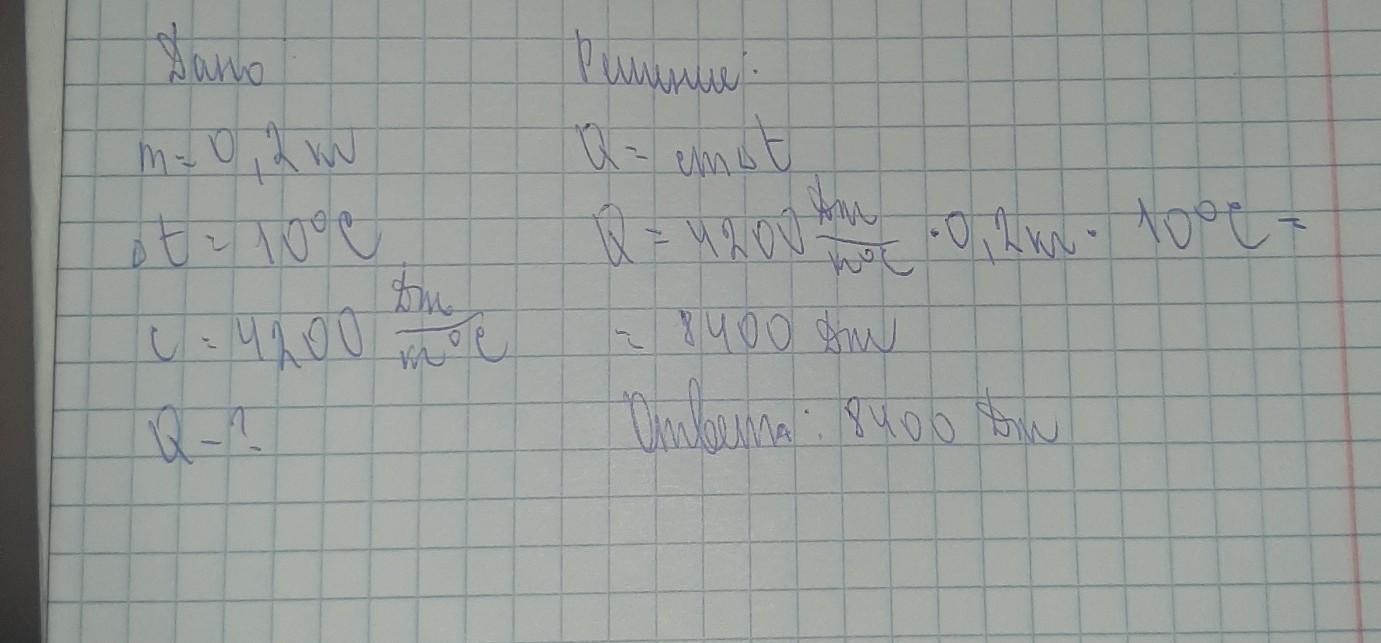 Дано
m = 0,2 кг
Δt = 10°C
c = 4200 Дж/кг°C
Q - ?
Решение:
Q = cmΔt
Q = 4200 Дж/кг°C · 0,2 кг · 10°C =
= 8400 Дж
Ответ: 8400 Дж